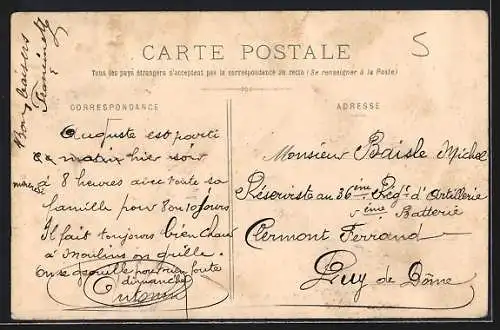 5
CARTE POSTALE
Tous les pays étrangers n'acceptent pas la correspondance au recto (Se renseigner à la Poste)
CORRESPONDANCE
ADRESSE
Bons baisers
Auguste est parti
hier soir
à 8 heures avec toute sa
famille pour 8 ou 10 jours
Il fait toujours bien chau
à Moulins on grille.
pour rien toute
dimanche
Monsieur Baisle Michel
Réserviste au 36ème Régt d'Artillerie
5ème Batterie
Clermont Ferrand
Puy de Dôme